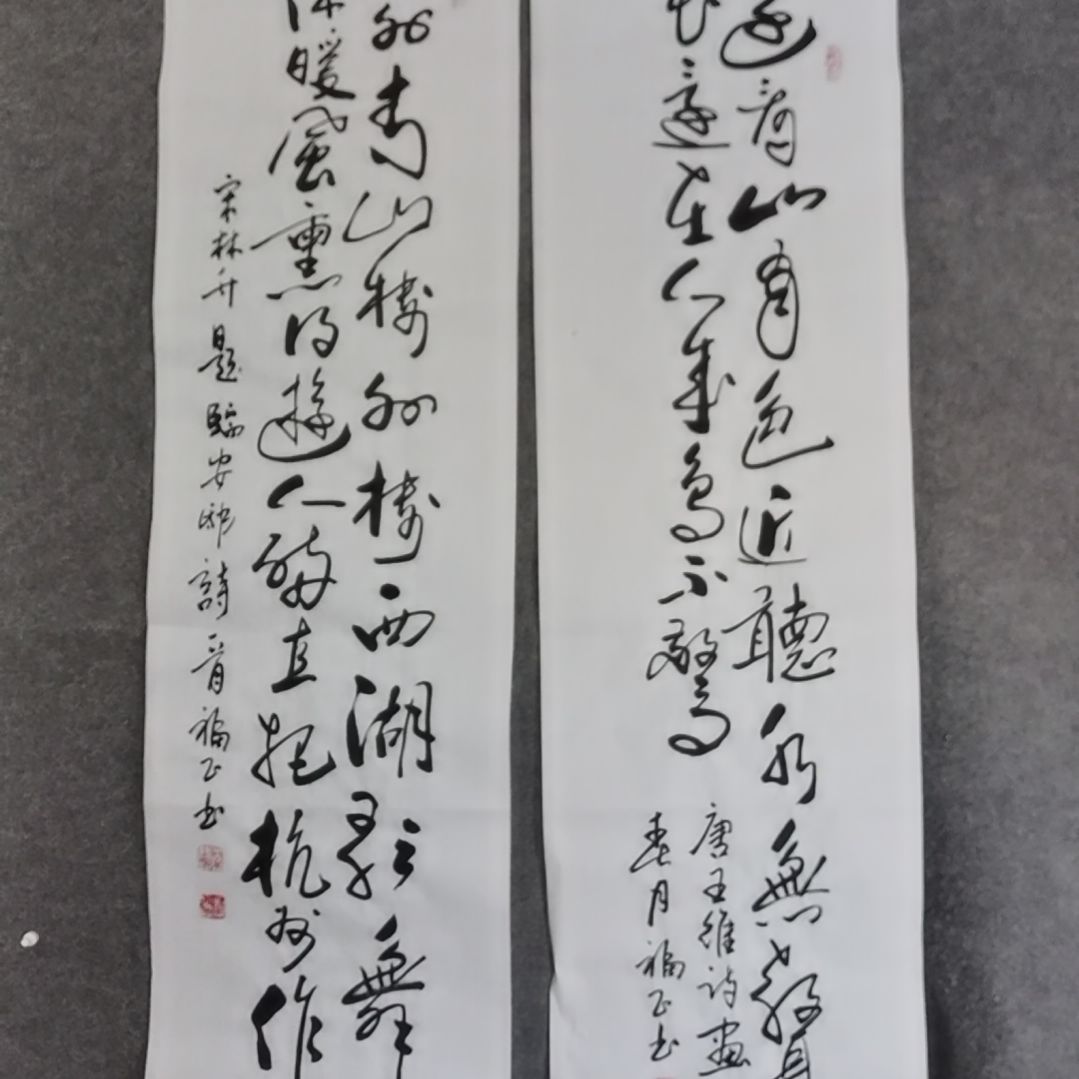 遠看山有色近聽水無聲
花還在人來鳥不驚
唐王維詩畫
春月福正書
外青山樓外樓西湖歌舞
休暖風熏得遊人醉直把杭州作
宋林升題臨安邸詩一首福正書